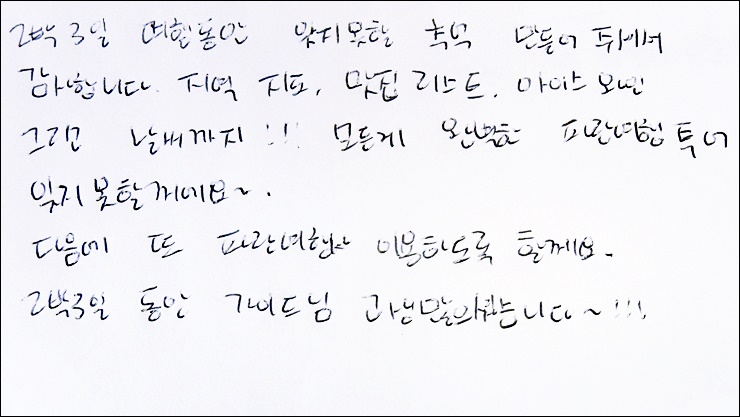 2박3일 여행동안 잊지못할 추억 만들어 주셔서
감사합니다. 지역 지도, 맛집 리스트, 아이스 와인
그리고 날씨까지!!! 모든게 완벽한 파란여행 투어
잊지 못할꺼에요~.
다음에 또 파란여행사 이용하도록 할께요.
2박3일 동안 가이드님 고생많으셨습니다~!!!